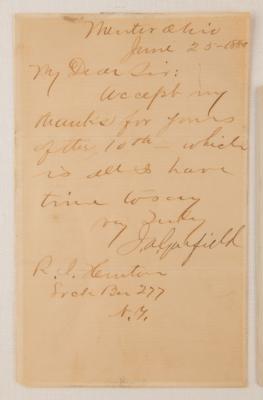 Mentor Ohio
June 25-1880
My Dear Sir:
Accept my
thanks for yours
of the 10th - which
is all I have
time to say
Truly
J. A. Garfield
R. J. Hinton
Box 277
N. Y.